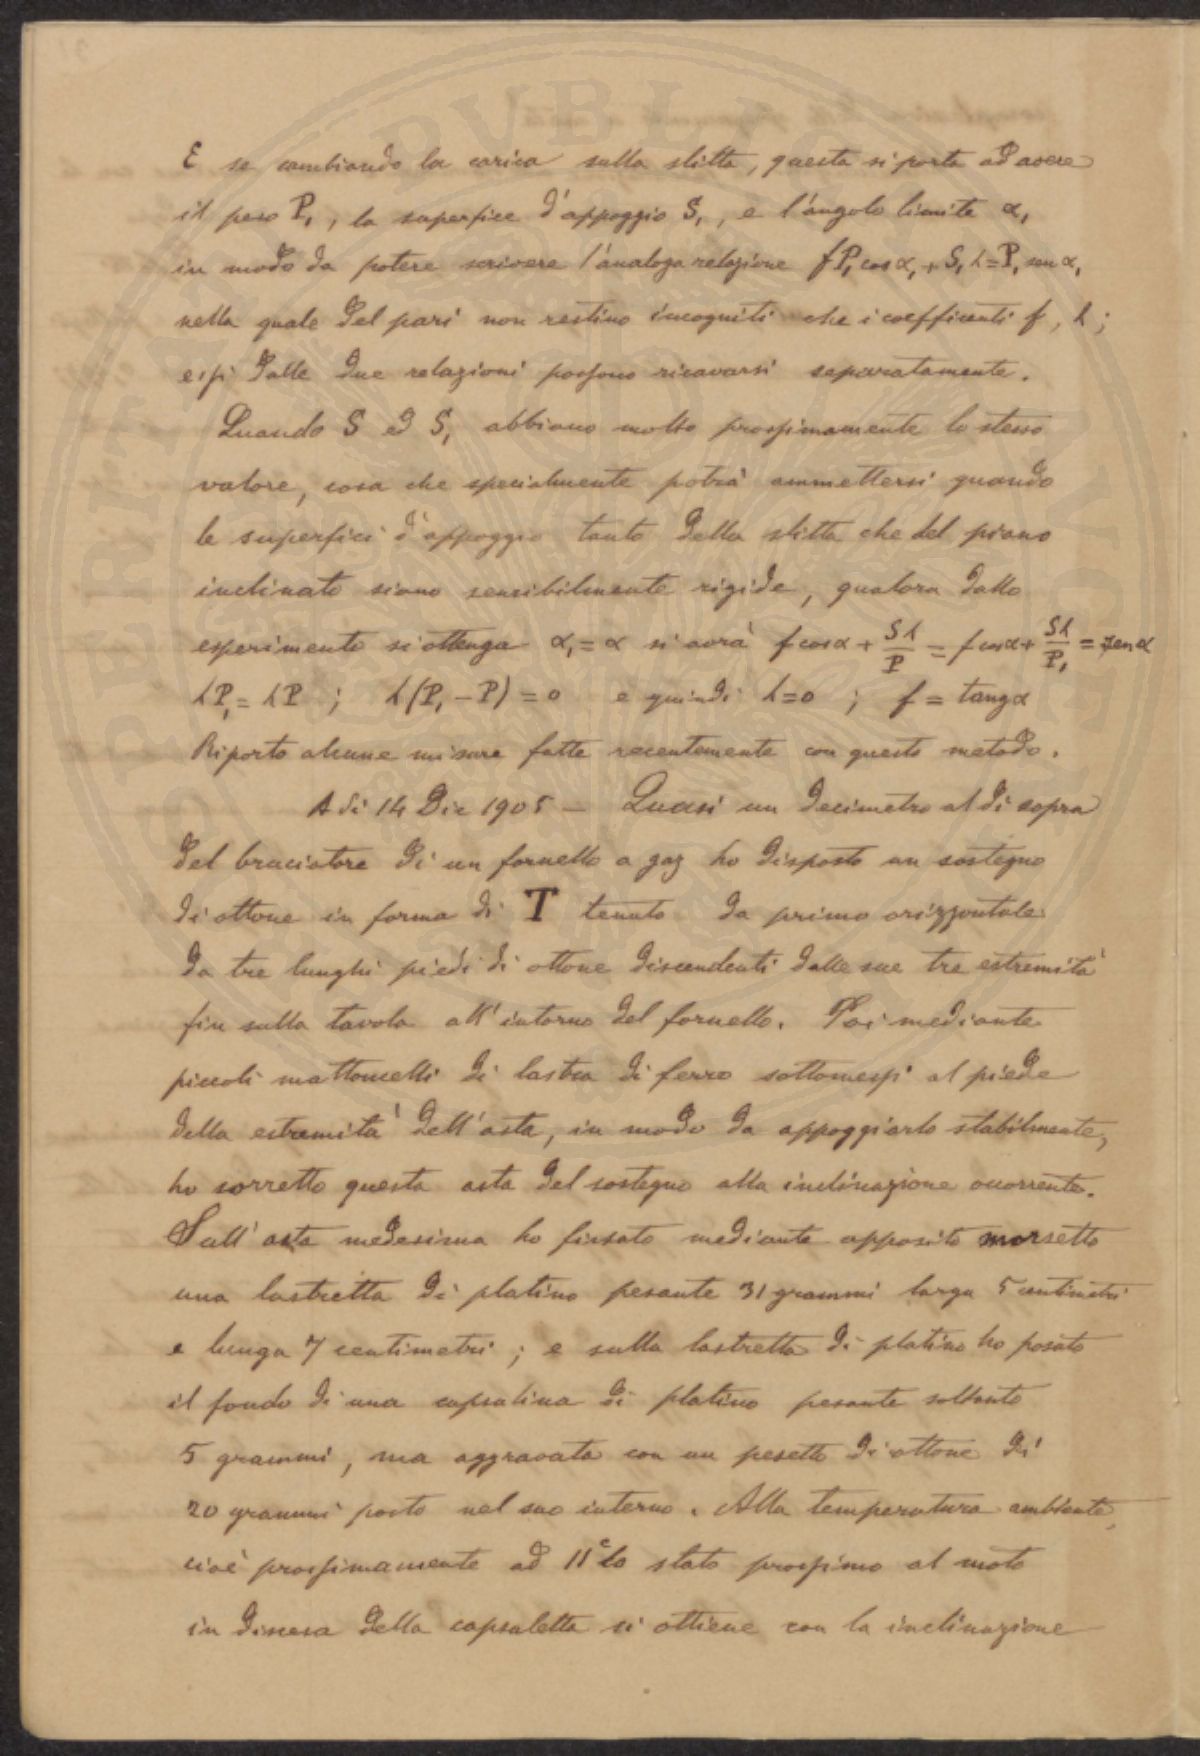 E se cambiando la carica sulla slitta, questa si porta ad avere
il peso P₁, la superfice d'appoggio S₁, e l'angolo limite α₁
in modo da potere scrivere l'analoga relazione fP₁cosα₁ + S₁h = P₁senα₁
nella quale del pari non restino incogniti che i coefficenti f, h;
essi dalle due relazioni possono ricavarsi separatamente.
Quando S ed S₁ abbiano molto prossimamente lo stesso
valore, cosa che specialmente potrà ammettersi quando
le superfici d'appoggio tanto della slitta che del piano
inclinato siano sensibilmente rigide, qualora dallo
esperimento si ottenga α₁=α si avrà fcosα + Sh/P = fcosα + Sh/P₁ = senα
hP₁ = hP ; h(P₁ − P) = 0 e quindi h=0 ; f = tangα
Riporto alcune misure fatte recentemente con questo metodo.
A dì 14 Dic 1905 — Quasi un decimetro al di sopra
del bruciatore di un fornello a gaz ho disposto un sostegno
di ottone in forma di T tenuto da primo orizzontale
da tre lunghi piedi di ottone discendenti dalle sue tre estremità
fin sulla tavola all'intorno del fornello. Poi mediante
piccoli mattoncelli di lastra di ferro sottomessi al piede
della estremità dell'asta, in modo da appoggiarlo stabilmente,
ho sorretto questa asta del sostegno alla inclinazione ocorrente.
Sull'asta medesima ho fissato mediante apposito morsetto
una lastretta di platino pesante 31 grammi larga 5 centimetri
e lunga 7 centimetri ; e sulla lastretta di platino ho posato
il fondo di una capsulina di platino pesante soltanto
5 grammi, ma aggravata con un pesetto di ottone di
20 grammi posto nel suo interno. Alla temperatura ambiente,
cioè prossimamente ad 11° lo stato prossimo al moto
in discesa della capsuletta si ottiene con la inclinazione